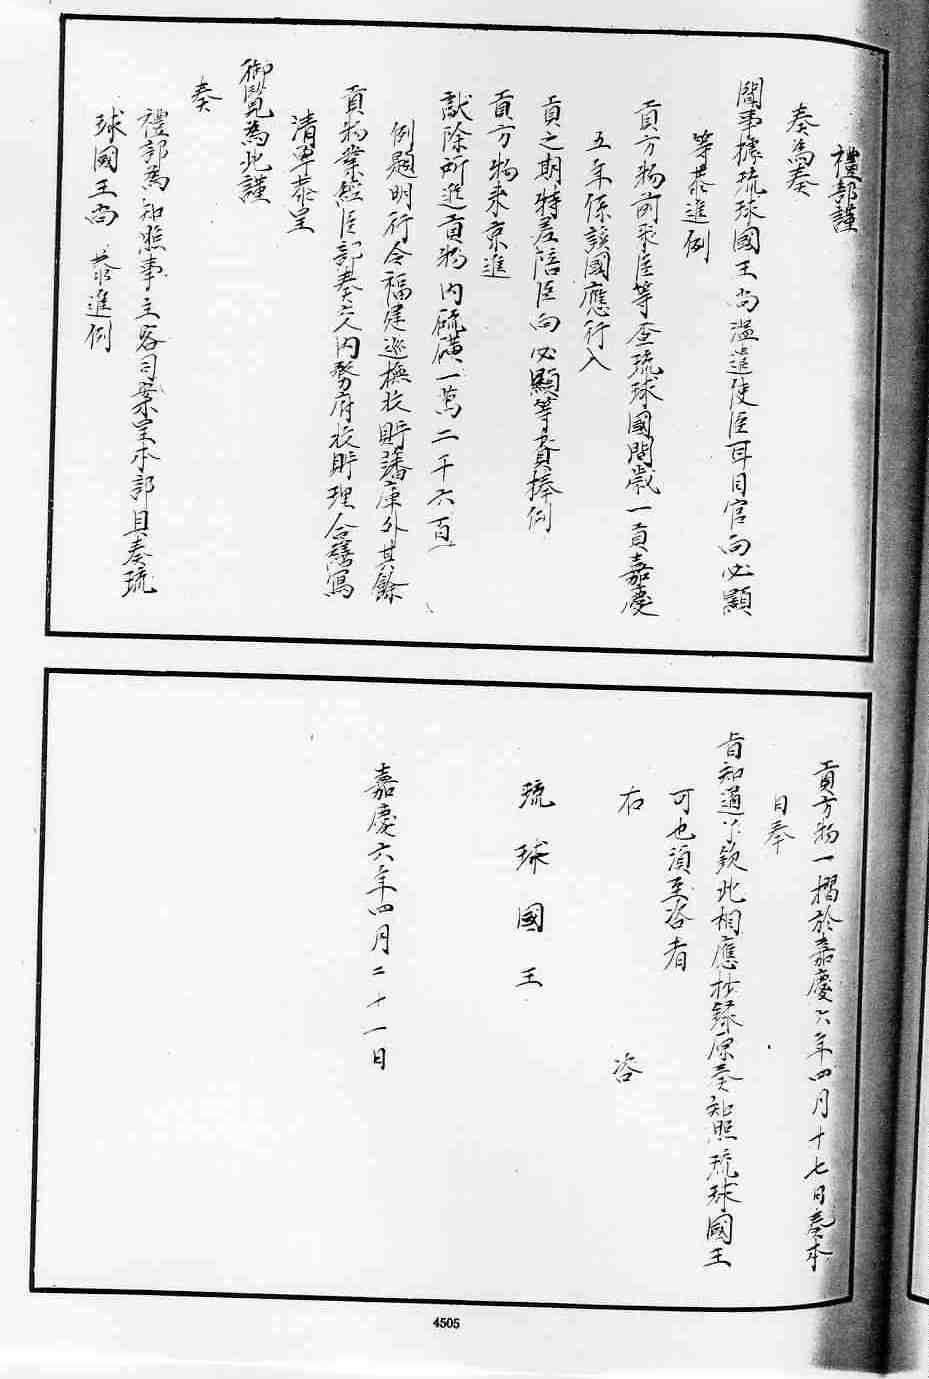 禮部謹
奏為奏
聞事據琉球國王尚溫遣使臣耳目官向必顯
等恭進例
貢方物前來臣等查琉球國間歲一貢嘉慶
五年係該國應行入
貢之期特差陪臣向必顯等賫捧例
貢方物來京進
獻除所進貢物內硫磺一萬二千六百
例題明行令福建巡撫收貯藩庫外其餘
貢物業經臣部奏交內務府收貯理合繕寫
清單恭呈
御覽為此謹
奏
禮部為知照事主客司案呈本部具奏琉
球國王尚 恭進例
貢方物一摺於嘉慶六年四月十七日奏本
日奉
旨知道了欽此相應抄錄原奏知照琉球國王
可也須至咨者
右 咨
琉球國王
嘉慶六年四月二十一日
4505